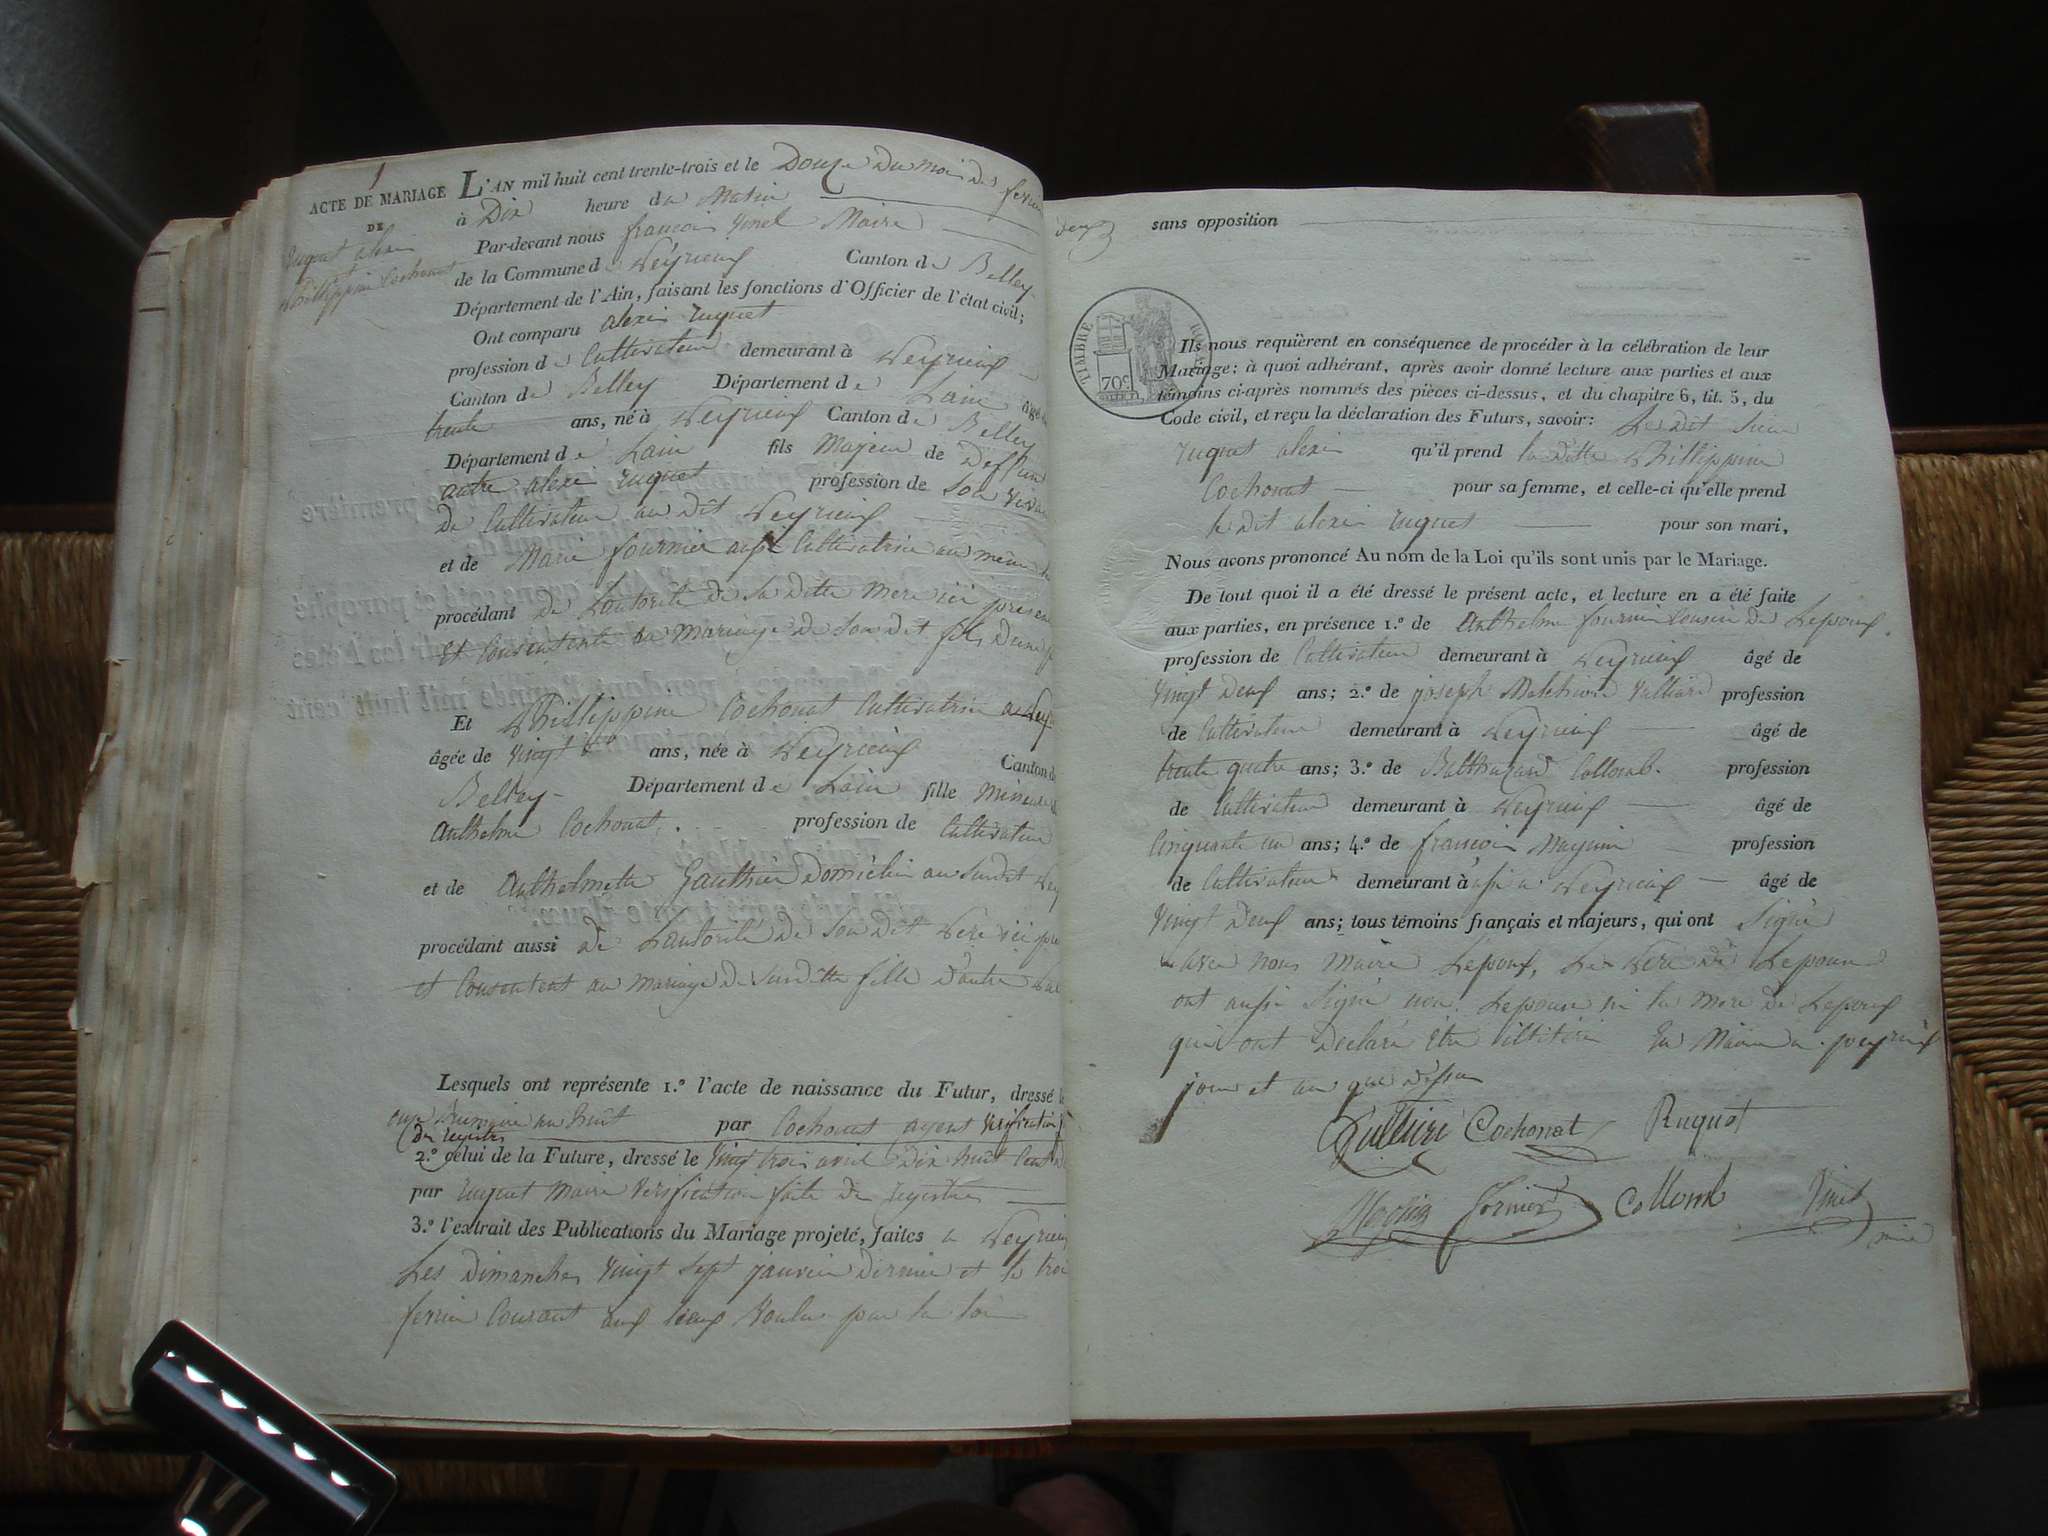 1
ACTE DE MARIAGE
DE
ruquet alexi
Phillippine Cochonat
L'AN mil huit cent trente-trois et le Douze Du mois de fevrier
à Dix heure du Matin
Par-devant nous francois Vinet Maire
de la Commune de Peyrieux Canton de Belley
Département de l'Ain, faisant les fonctions d'Officier de l'état civil;
Ont comparu alexi ruquet
profession de Cultivateur demeurant à Peyrieux
Canton de Belley Département de Lain âgé de
trente ans, né à Peyrieux Canton de Belley
Département de Lain fils Majeur de Deffunt
autre alexi ruquet profession de Son vivant
De Cultivateur au dit Peyrieux
et de Marie fournier aussi Cultivatrice au même
procédant de Lautorité de Sa Ditte Mere ici presente
et Consentente au mariage de Son dit fils Dune
Et Phillippine Cochonat Cultivatrice a Pey
âgée de vingt ans, née à Peyrieux Canton de
Belley Département de Lain fille Mineure de
Anthelme Cochonat profession de Cultivateur
et de Anthelmette Gauthier Domicilié au Susdit Pey
procédant aussi de Lautorité de Son Dit Père ici pre
et Consentent au mariage De Sus ditte fille D'autre
Lesquels ont représente 1.º l'acte de naissance du Futur, dressé le
onze brumaire an huit par Cochonat agent vérification
Des registres
2.º celui de la Future, dressé le vingt trois avril Dix huit Cent
par ruquet Maire vérification faite de registres
3.º l'extrait des Publications du Mariage projeté, faites a Peyrieux
Les Dimanches vingt Sept janvier Dernier et le troi
fevrier Courant aux lieux voulus par la loi
deux
sans opposition
TIMBRE ROYAL
70c
Ils nous requièrent en conséquence de procéder à la célébration de leur
Mariage: à quoi adhérant, après avoir donné lecture aux parties et aux
témoins ci-après nommés des pièces ci-dessus, et du chapitre 6, tit. 5, du
Code civil, et reçu la déclaration des Futurs, savoir: Le dit Sieur
ruquet alexi qu'il prend la ditte Phillippine
Cochonat pour sa femme, et celle-ci qu'elle prend
le dit alexi ruquet pour son mari,
Nous avons prononcé Au nom de la Loi qu'ils sont unis par le Mariage.
De tout quoi il a été dressé le présent acte, et lecture en a été faite
aux parties, en présence 1.º de Anthelme fournier Cousin de Lepoux
profession de Cultivateur demeurant à Peyrieux âgé de
vingt Deux ans; 2.º de joseph Melchior Vulliard profession
de Cultivateur demeurant à Peyrieux âgé de
trente quatre ans; 3.º de Balthazard Collomb profession
de Cultivateur demeurant à Peyrieux âgé de
Cinquante un ans; 4.º de francois Magnin profession
de Cultivateur demeurant à aussi a Peyrieux âgé de
vingt Deux ans; tous témoins français et majeurs, qui ont Signé
avec nous Maire Lepoux, Le Pere De Lepouse
ont aussi Signé non Lepouse ni la mere de Lepoux
qui ont Declaré être illitéré En Mairie a peyrieux
jour et an que dessus
Cochonat Ruquet
Magnin fornier Collomb Vinet
mre